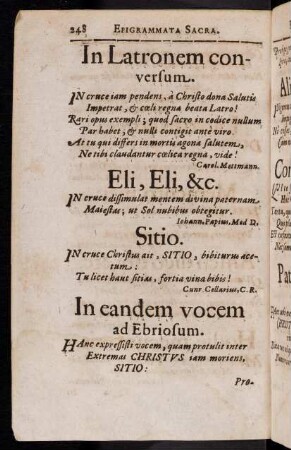 248 EPIGRAMMATA SACRA.
In Latronem con-
versum.
IN cruce iam pendens, à Christo dona Salutis
Impetrat, & cœli regna beata Latro!
Rari opus exempli; quod sacro in codice nullum
Par habet, & nulli contigit antè viro.
At tu qui differs in mortis agona salutem,
Ne tibi claudantur cœlica regna, vide!
Carol. Mettmann.
Eli, Eli, &c.
IN cruce dissimulat mentem divina paternam
Maiestas; ut Sol nubibus obtegitur.
Iohann. Papius, Med D.
Sitio.
IN cruce Christus ait, SITIO, bibiturus ace-
tum:
Tu licet haut sitias, fortia vina bibis!
Cunr. Cellarius, C. R.
In eandem vocem
ad Ebriosum.
HAnc expressisti vocem, quam protulit inter
Extrema CHRISTVS iam moriens,
SITIO:
Pro-